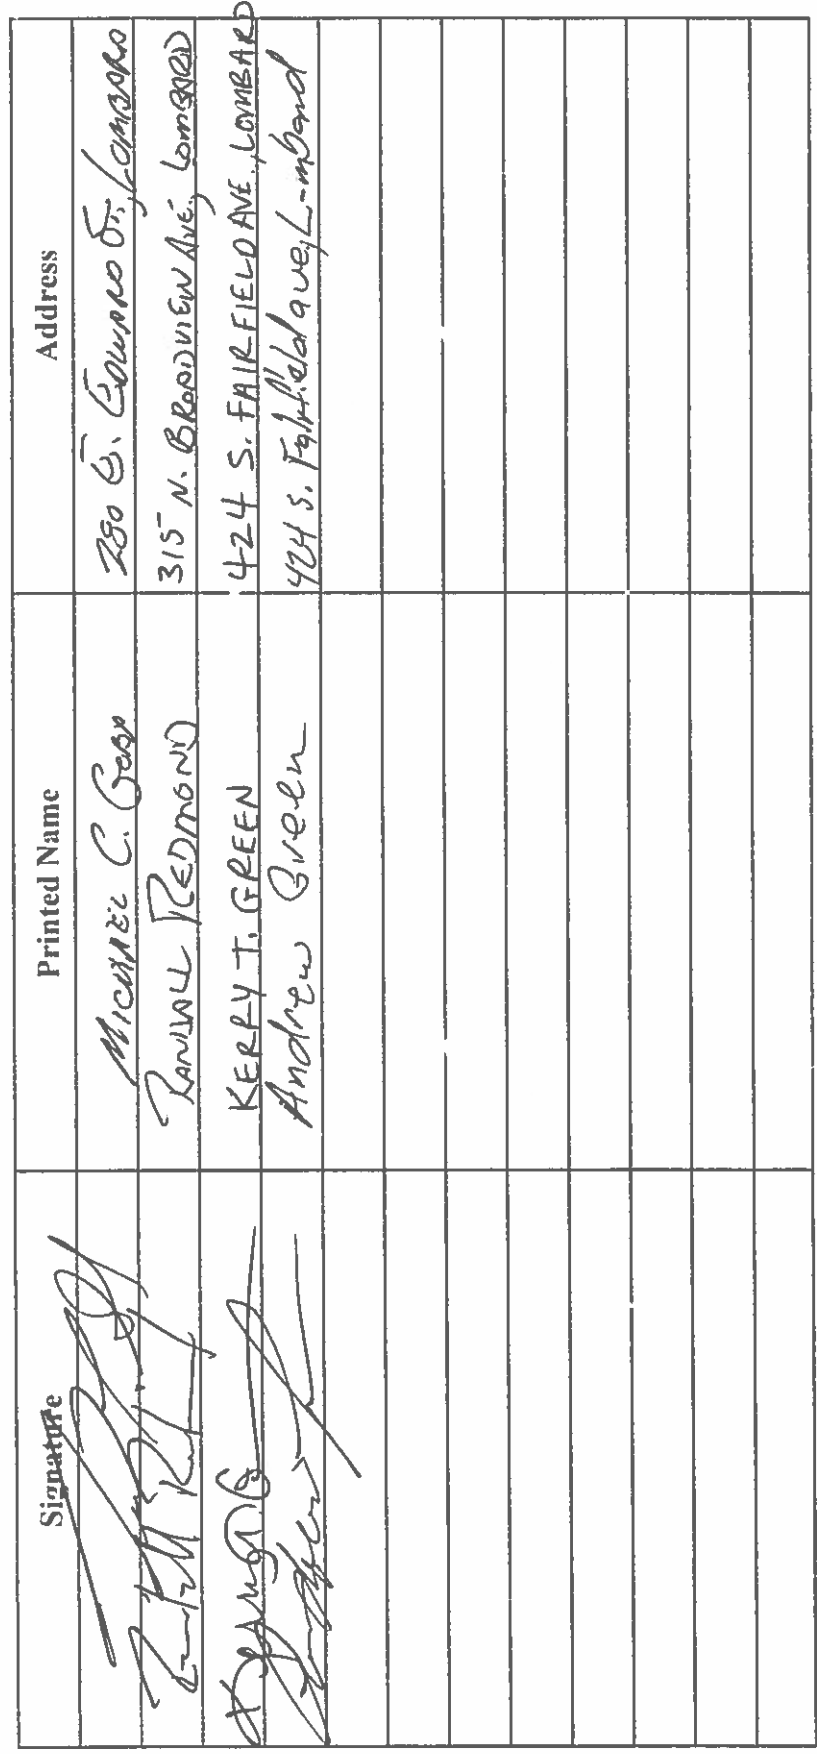 Signature Printed Name Address
MICHAEL C. 280 E. EDWARD ST., LOMBARD
RANDALL REDMOND 315 N. BROADVIEW AVE., LOMBARD
KERRY T. GREEN 424 S. FAIRFIELD AVE., LOMBARD
Andrew Green 424 S. Fairfield ave, Lombard